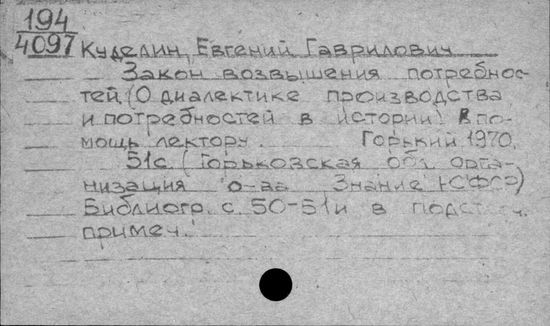 194
4097 Куделин, Евгений Гаврилович
Закон возвышения потребнос-
тей (О диалектике производства
и потребностей в истории) В по-
мощь лектору. Горький 1970.
51с (Горьковская обл. орга-
низация о-ва Знание РСФСР)
Библиогр. с. 50-51 и в
примеч.